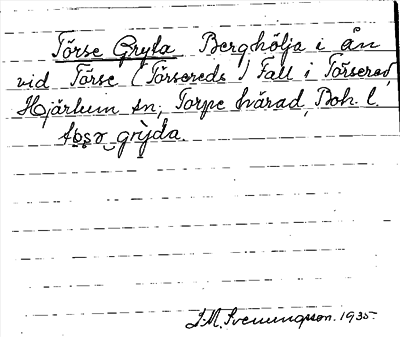 Törse Gryta Berghölja i ån
vid Törse (Törsereds) Fall i Törsered,
Hjärtum sn, Torpe härad, Boh. l.
grỳda.
J.M. Svenungsson. 1935.